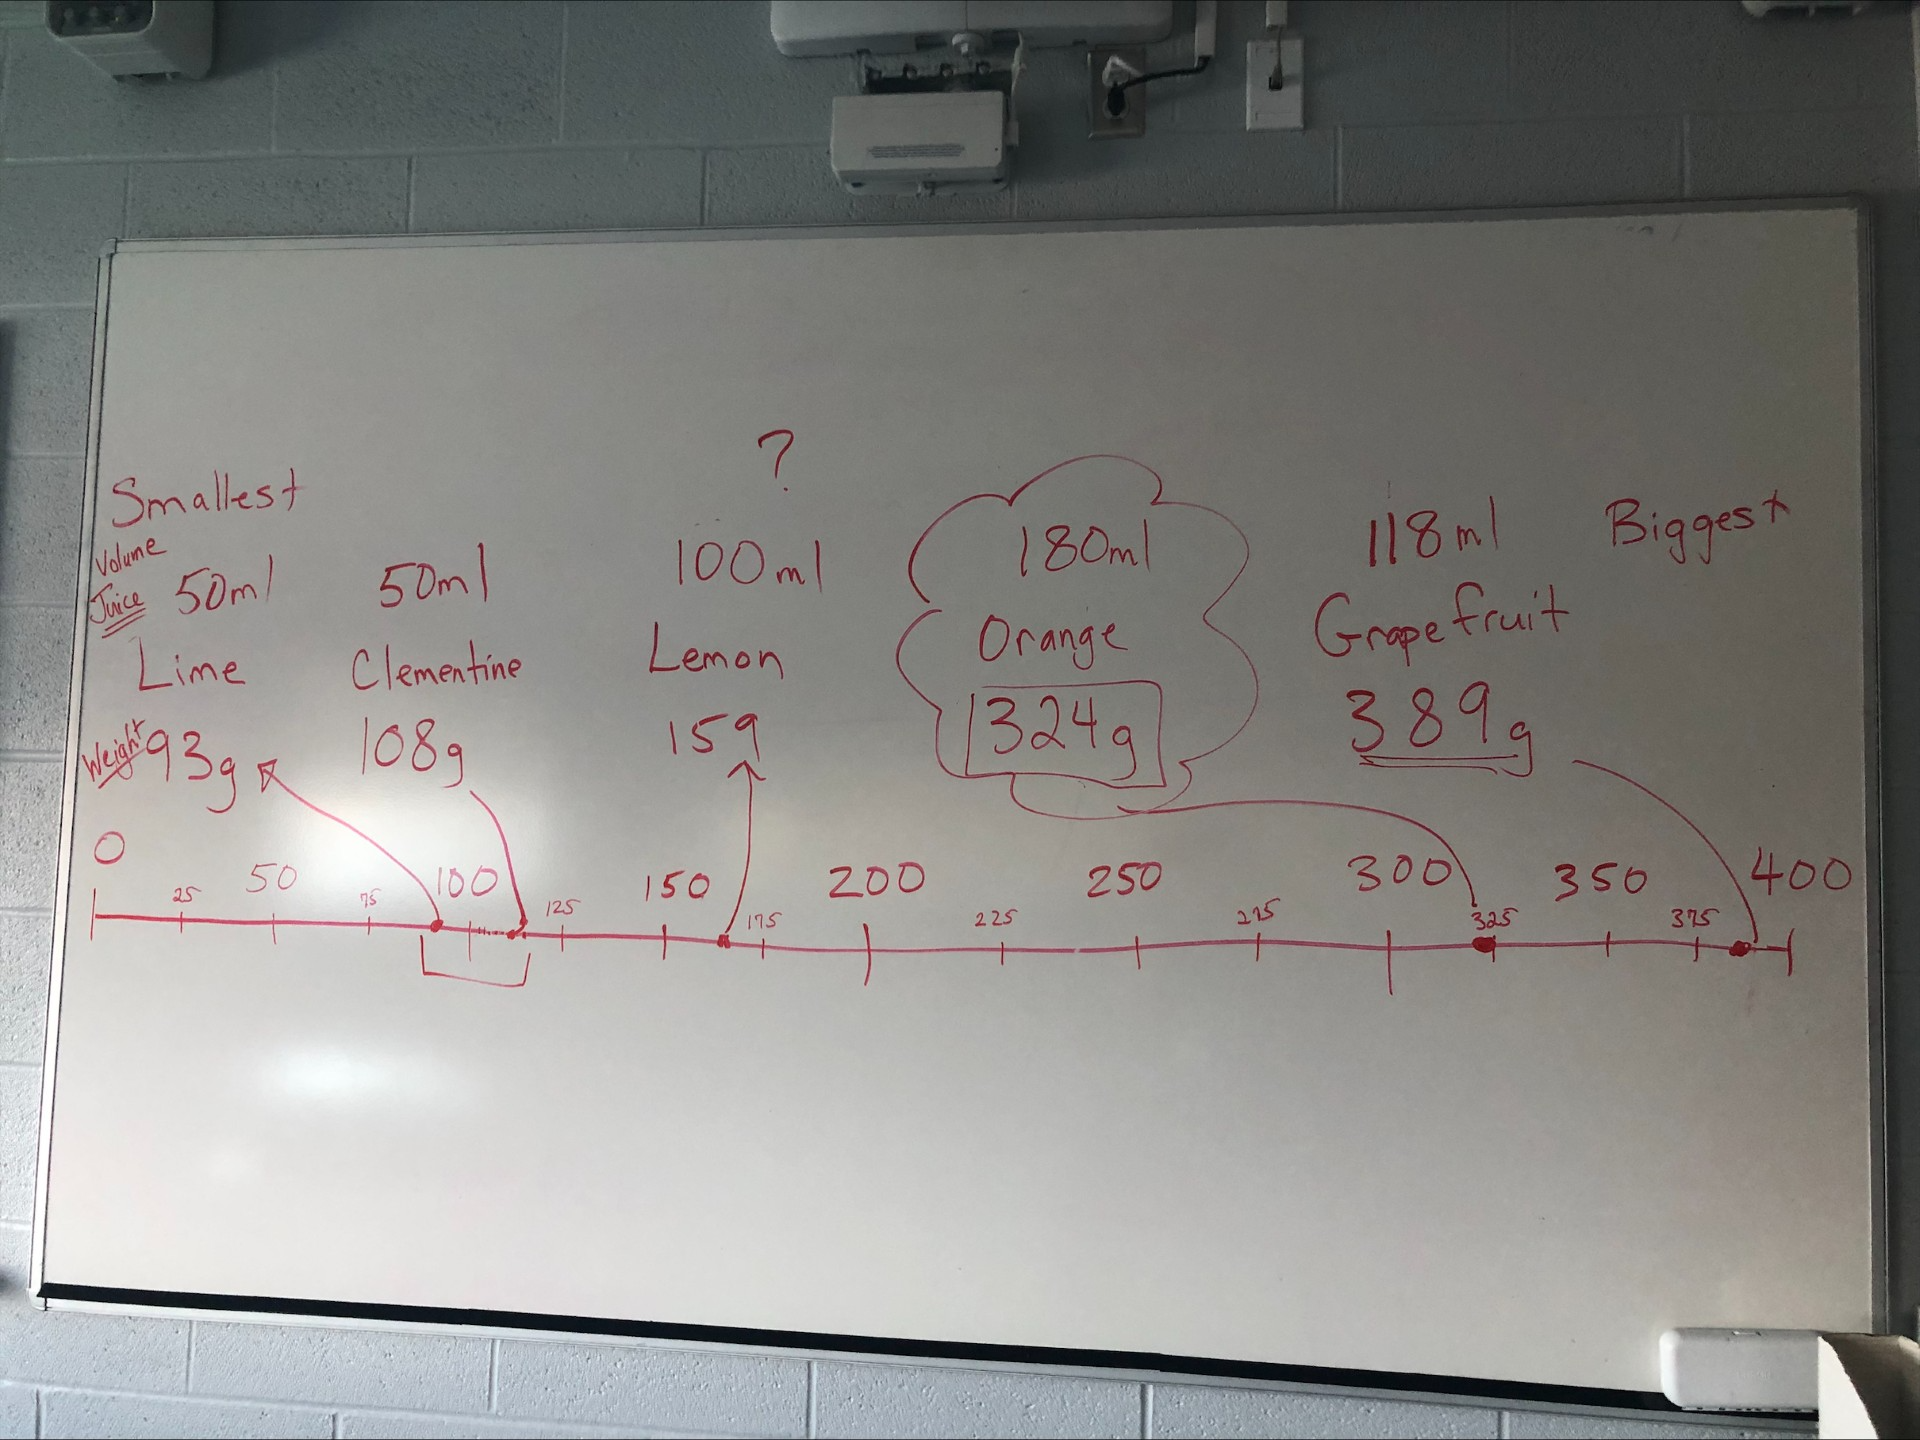 ?
Smallest
Biggest
Volume
Juice 50ml 50ml 100ml 180ml 118ml
Lime Clementine Lemon Orange Grapefruit
Weight 93g 108g 159 324g 389g
0 25 50 75 100 125 150 175 200 225 250 275 300 325 350 375 400